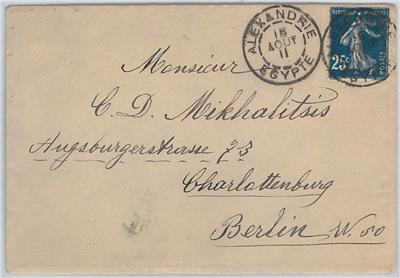 ALEXANDRIE
15
AOUT
11
EGYPTE
25c
POSTES
Monsieur
C. D. Mikhalitsis
Augsburgerstrasse 73
Charlottenburg
Berlin W. 50